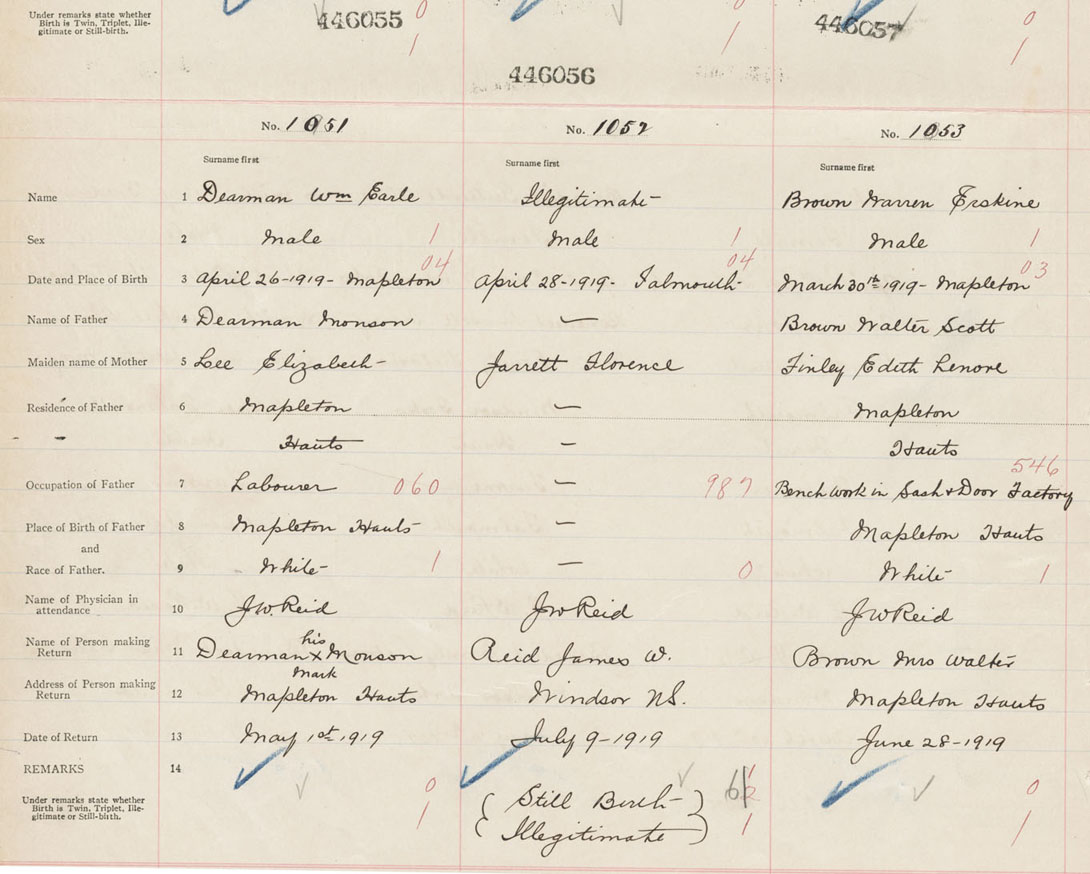 Under remarks state whether
Birth is Twin, Triplet, Ille-
gitimate or Still-birth.
446055 0 446057 0
1 1 1
446056
No. 1051 No. 1052 No. 1053
Surname first Surname first Surname first
Name 1 Dearman Wm Earle Illegitimate Brown Warren Erskine
Sex 2 Male 1 Male 1 Male 1
04 04 03
Date and Place of Birth 3 April 26-1919- Mapleton April 28-1919- Falmouth March 30th 1919- Mapleton
Name of Father 4 Dearman Monson — Brown Walter Scott
Maiden name of Mother 5 Lee Elizabeth Jarrett Florence Finley Edith Lenore
Residence of Father 6 Mapleton — Mapleton
Hants — Hants
546
Occupation of Father 7 Labourer 060 — 987 Bench work in Sash & Door Factory
Place of Birth of Father 8 Mapleton Hants — Mapleton Hants
and
Race of Father. 9 White 1 — 0 White 1
Name of Physician in
attendance 10 J.W. Reid J W Reid J W Reid
Name of Person making
Return 11 Dearman his x mark Monson Reid James W. Brown Mrs Walter
Address of Person making
Return 12 Mapleton Hants Windsor N.S. Mapleton Hants
Date of Return 13 May 1st 1919 July 9-1919 June 28-1919
REMARKS 14
Under remarks state whether
Birth is Twin, Triplet, Ille-
gitimate or Still-birth.
0 (Still Birth) 0
1 (Illegitimate) 1 1